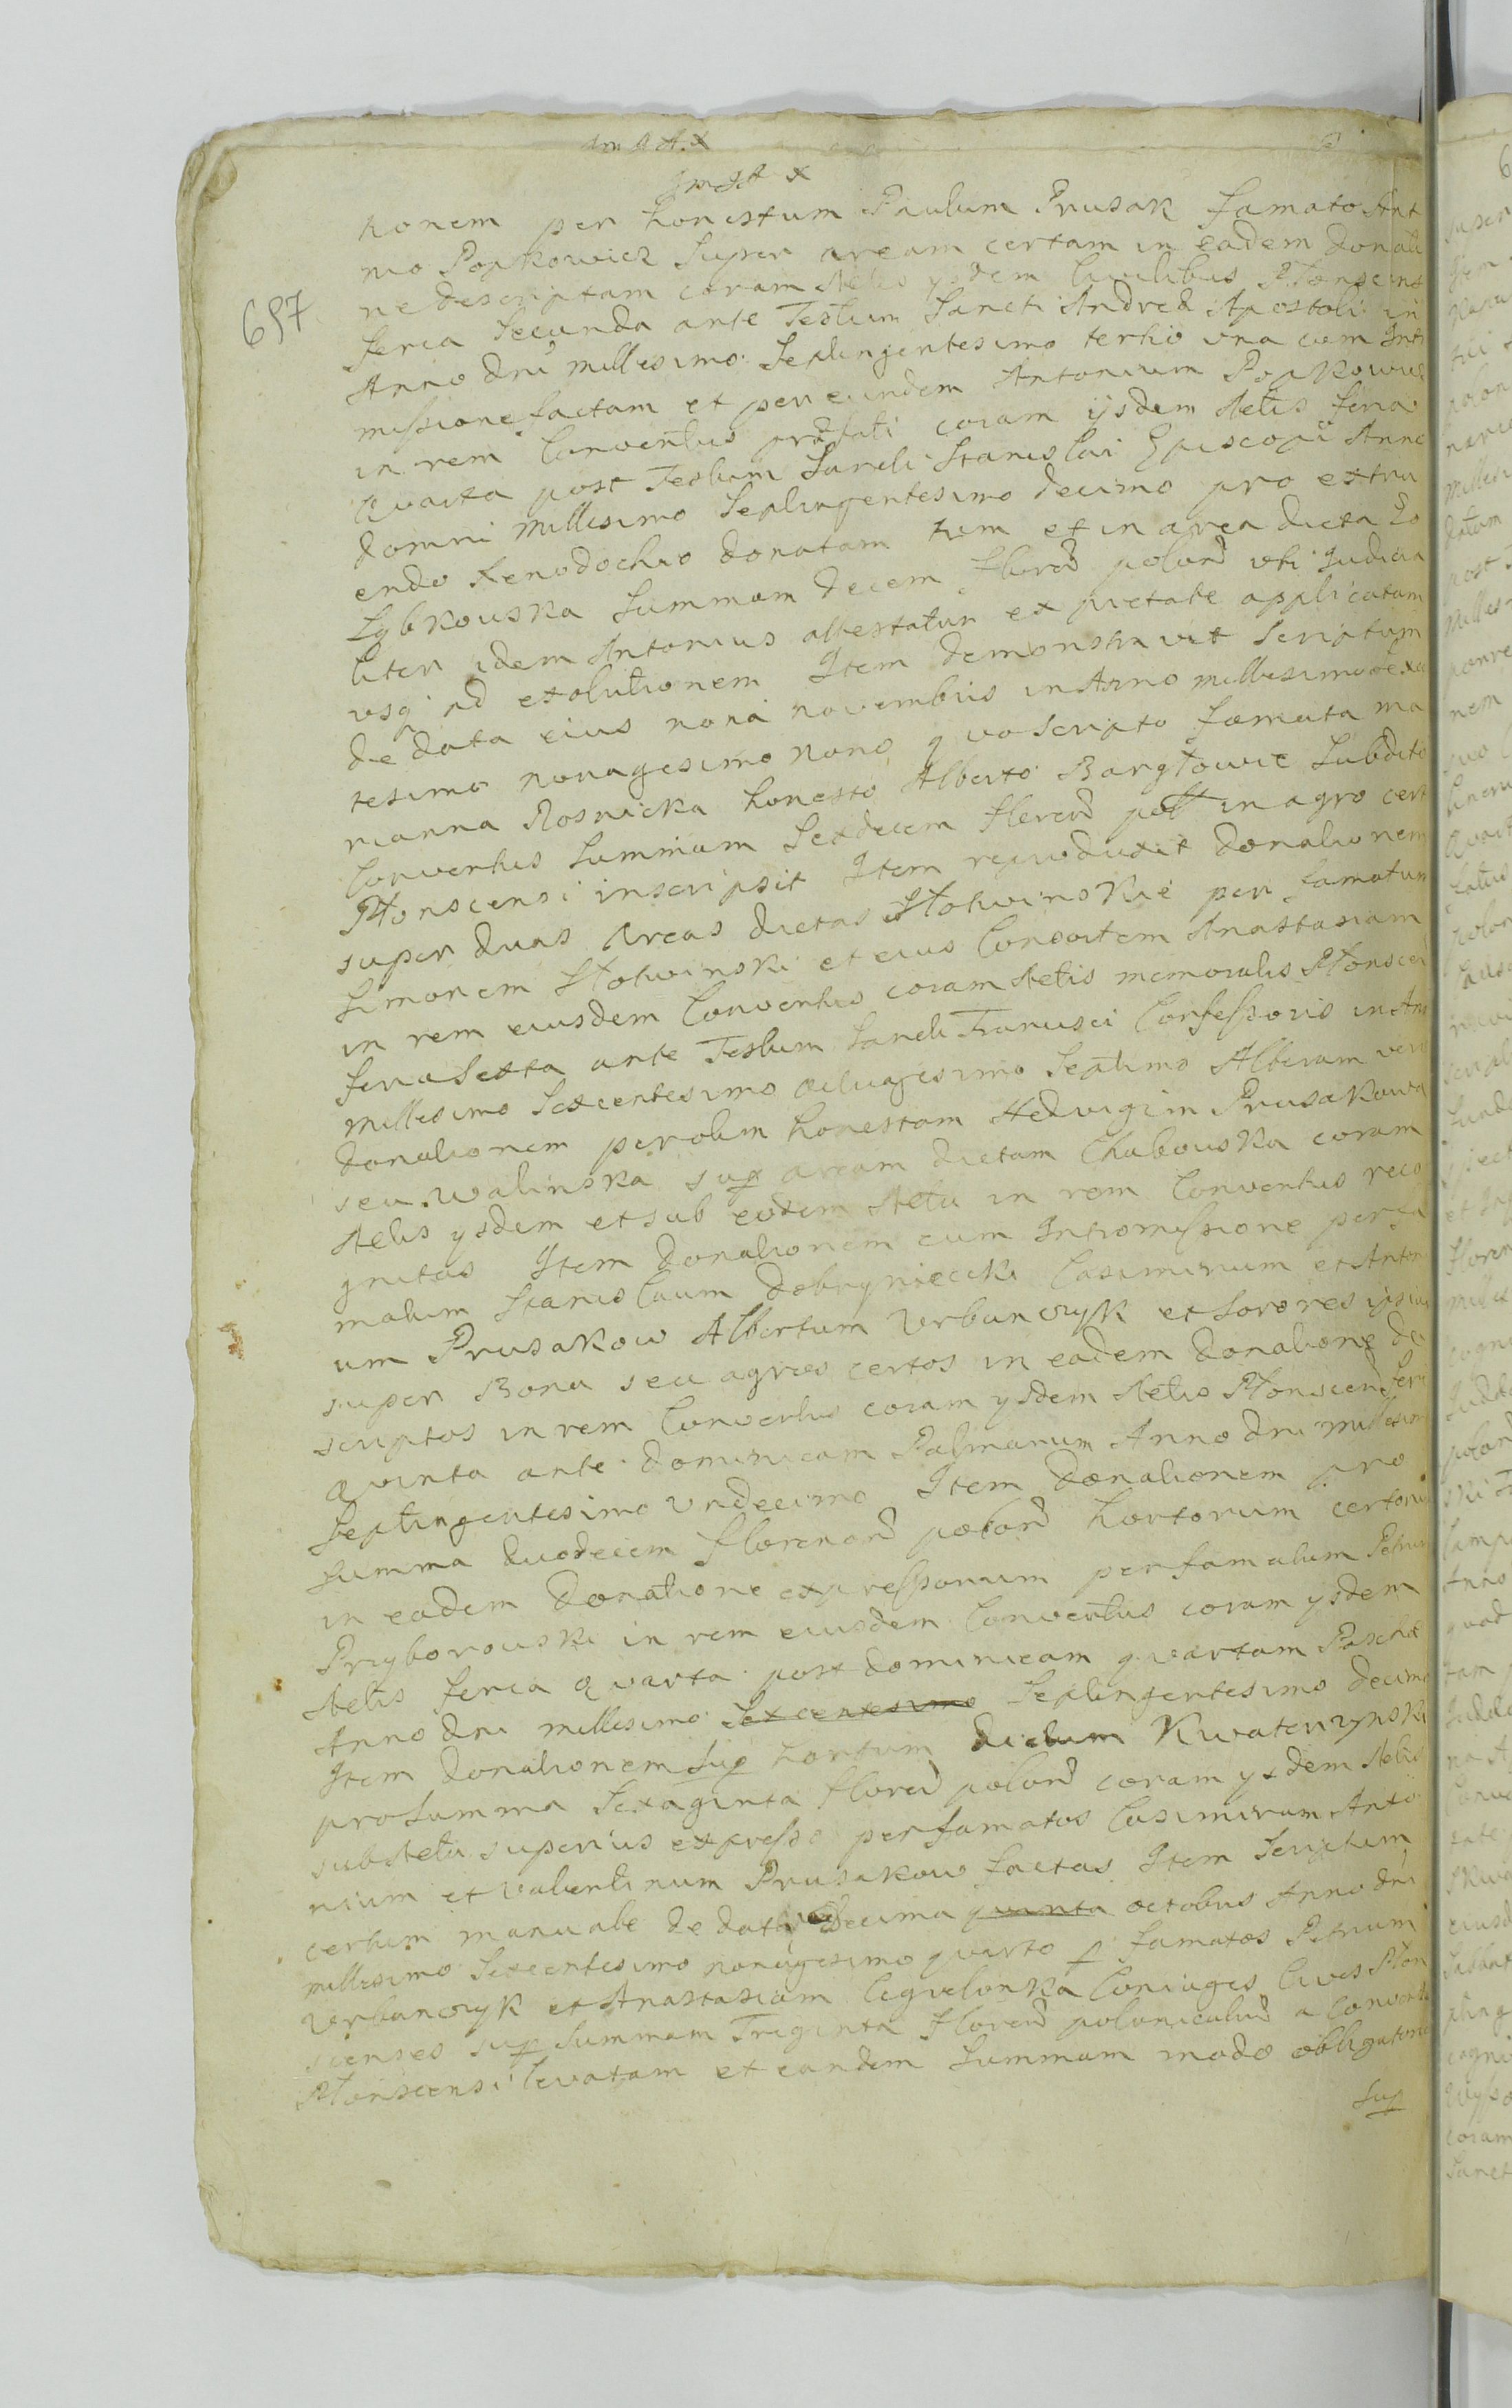 nonem per honestum Paulum Prusak famato Ant
nio Popkowicz super aream certam in eadem donatio
ne descriptam coram Actis ysdem Civilibus Płonscens
feria Secunda ante Festum Sancti Andreæ Apostoli in
657
Anno dni millesimo Septingentesimo tertio una cum Intro
missione factam et per eundem Antonium Popkowicz
in rem Conventus præfati coram ijsdem Actis feria
Quarta post Festum Sancti Stanislai Episcopi Anno
domini millesimo Septingentesimo decimo pro extru
endo Xenodochio donatam tum et in area dicta
summam decem floren polon uti Judicia
liter idem Antonius attestatur ex pietate applicatam
usq ad exolutionem Item demonstravit Scriptum
de data eius nona novembris in Anno millesimo sexcen
tesimo nonagesimo nono quo scripto famata ma
rianna Rosnicka honesto Alberto Bargłowic Subdito
Conventus Summam Sexdecem floren poll in agro cert
Płonscensi inscripsit Item reproduxit donationem
super duas Areas dictas Słotwinskie per famatum
Simonem Słotwinski et eius Consortem Anastasiam
in rem eiusdem Conventus coram Actis memoratis Płonscen
feria Sexta ante Festum Sancti Francisci Confessoris in Ann
millesimo Sexcentesimo octuagesimo Septimo Alteram vero
donationem per olim honestam Hedvigim Prusakowa
seu walinska sup aream dictam Chabowska coram
Actis ysdem et sub eodem Actu in rem Conventus reco
gnitas Item donationem cum Intromissione per fa
matum Stanislaum Dobrzyniecki Casimirum et Anton
um Prusakow Albertum Urbanczyk et Sorores ipsius
super Bona seu agros certos in eadem donatione de
scriptos in rem Conventus coram ysdem Actis Płonscen Feri
quinta ante dominicam Palmarum Anno dni millesim
Septingentesimo undecimo Item donationem pro
summa duodecem florenor polon hortorum certoru
in eadem donatione expressorum per famatum Petrum
Przyborowski in rem eiusdem Conventus coram ysdem
Actis feria quarta post dominicam quartam Paschæ
Anno dni millesimo Sexcentesimo Septingentesimo decimo
Item donationem sup hortum dictum Kwaterzynski
pro Summa Sexaginta floren polon coram ysdem Actis
sub Actu superius expresso per famatos Casimirum Anto
nium et Valentinum Prusakow factas Item Scriptum
certum manuale de data decima quinta octobris Anno dni
millesimo Sexcentesimo nonagesimo quarto p famatos Petrum
Urbanczyk et Anastasiam Cegielonka Coniuges Cives Płon
scenses sup Summam Triginta floren polonicaliu a Convent
Płonscensi levatam et eandem Summam modo obligatorio
Sup